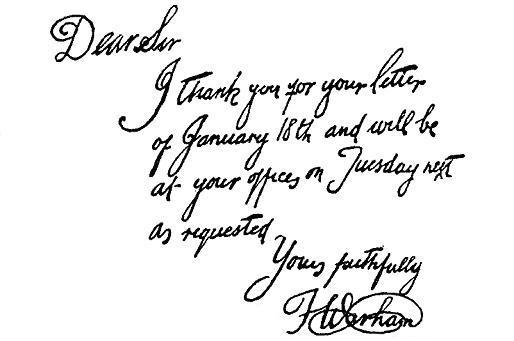 Dear Sir
I thank you for your letter
of January 18th and will be
at your offices on Tuesday next
as requested
Yours faithfully
F Warham